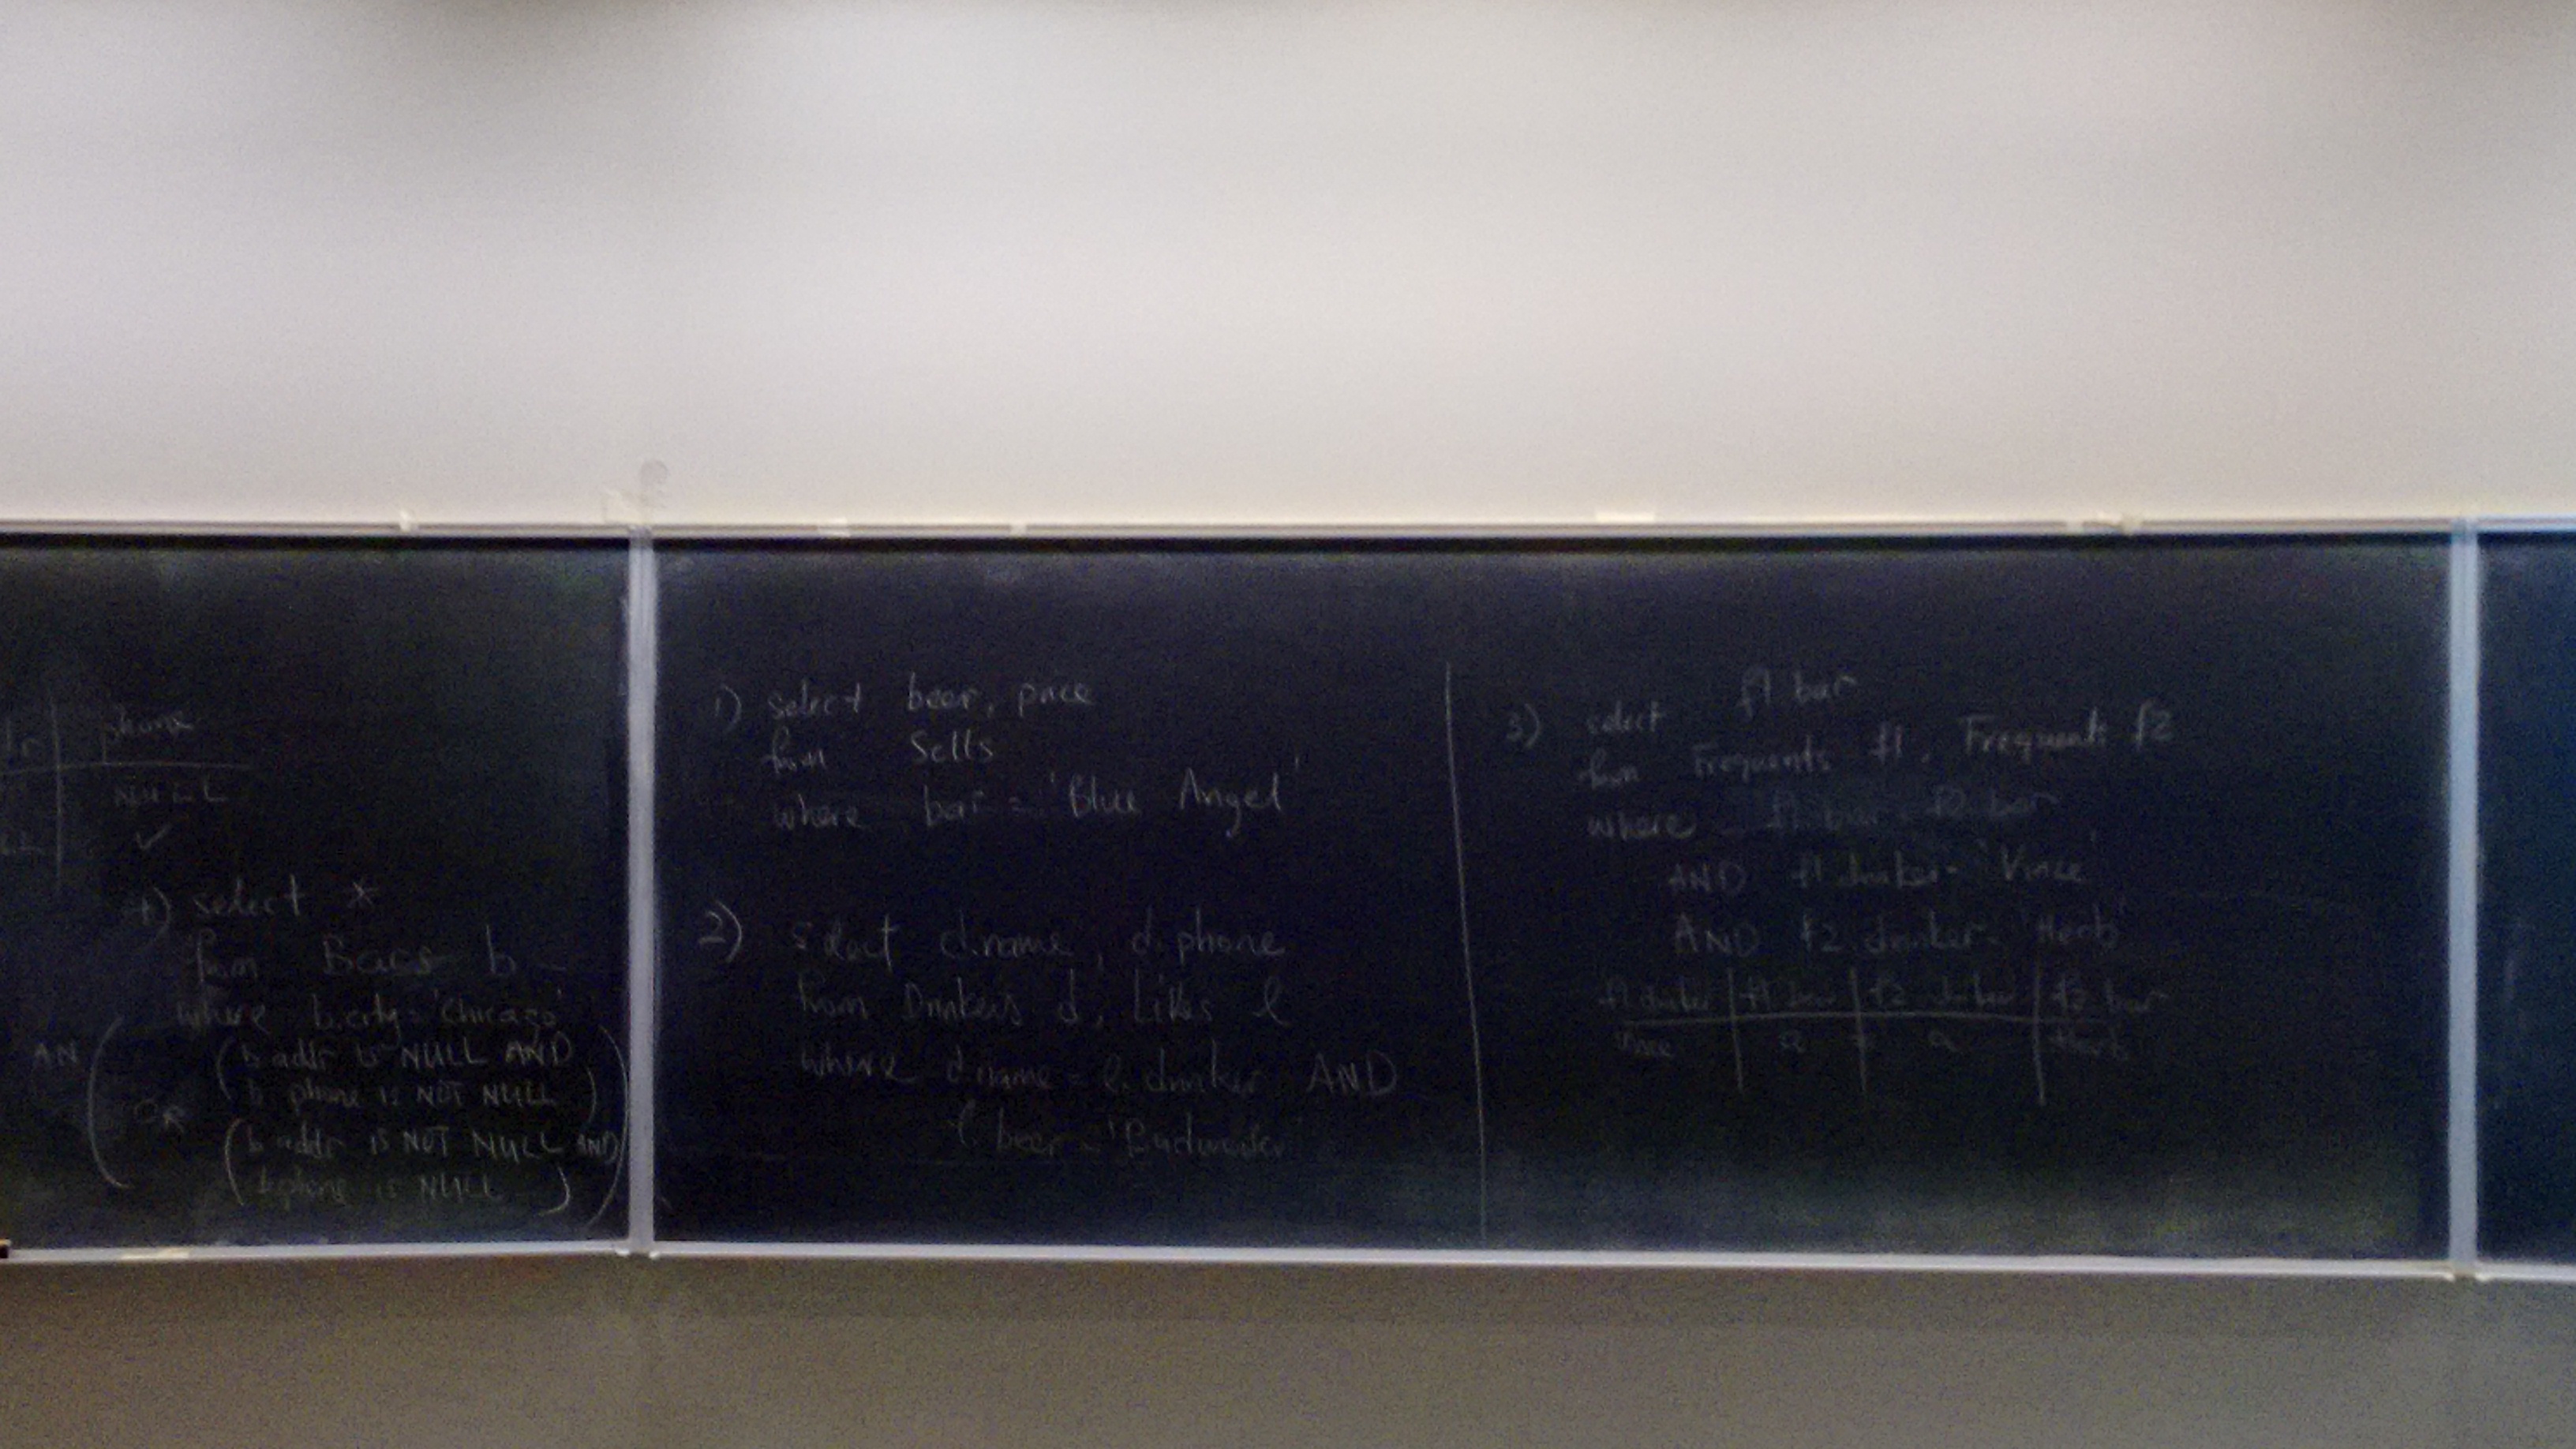 phone
NULL
✓
4) select *
from Bars b
where b.city = 'Chicago'
AN
(b.addr is NULL AND
b.phone is NOT NULL)
OR
(b.addr is NOT NULL AND
b.phone is NULL)
1) select beer, price
from Sells
where bar = 'Blue Angel'
2) select d.name, d.phone
from Drinkers d, Likes l
where d.name = l.drinker AND
l.beer = 'Budweiser'
3) select f1.bar
from Frequents f1, Frequents f2
where f1.bar = f2.bar
AND f1.drinker = 'Vince'
AND f2.drinker = 'Herb'
f1.drinker | f1.bar | f2.drinker | f2.bar
Vince | a = a | Herb